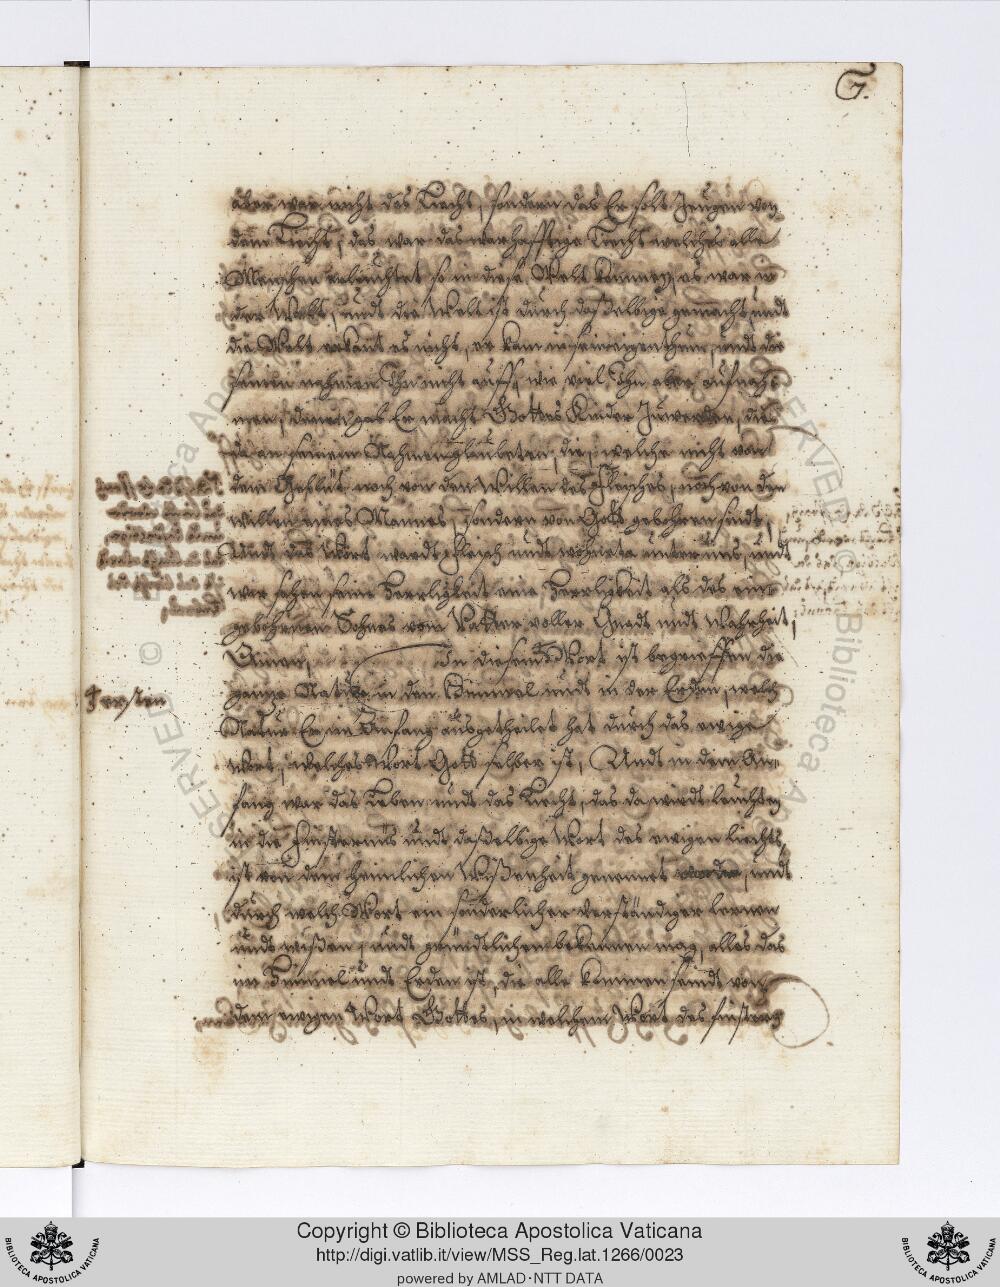 7.
aber war nicht das Liecht, sondern das Er solt Zeugen von
dem Liecht, das war das warhafftige Liecht welches alle
Menschen erleuchtet so in diese Welt kommen, es war in
der Welt, undt die Welt ist durch dasselbige gemacht, undt
die Welt erkant es nicht, er kam in sein eigenthum, undt die
seinen nahmen Ihn nicht auff, wie viel Ihn aber aufnah-
men, denen gab Er macht Gottes Kinder Zu werden, die
da an seinem Nahmen glaubeten, die welche nicht von
dem Geblüt, noch von den Willen des Fleisches, noch von den
willen eines Mannes, sondern von Gott gebohren sindt,
Undt das Wort wardt fleisch undt wohnete unter uns, undt
wir sahen seine Herrligkeit eine Herrligkeit als des ein-
gebohrnen Sohnes vom Vatter voller Gnadt undt Wahrheit,
Amen. In diesem Wort ist begrieffen die
gantze Natur in den Himmel undt in der Erden, welch
Natur Er im Anfang ausgetheilet hat durch das ewige
wort, welches Wort Gott selber ist, Undt in dem An-
fang war das Leben undt das Liecht, das da wirdt leuchten
in die finsternüs undt dasselbige Wort des ewigen liechts,
ist von dem heimlichen Weißenheit genennet worden, undt
durch welch Wort ein sonderlicher verständiger lernen
undt wißen, undt gründtlichen bekennen mag, alles das
im Himmel undt Erden ist, die alle kommen seindt von
dem ewigen Wort Gottes, in welchem Wort des finstern
Copyright © Biblioteca Apostolica Vaticana
http://digi.vatlib.it/view/MSS_Reg.lat.1266/0023
powered by AMLAD·NTT DATA
BIBLIOTECA APOSTOLICA VATICANA
BIBLIOTECA APOSTOLICA VATICANA